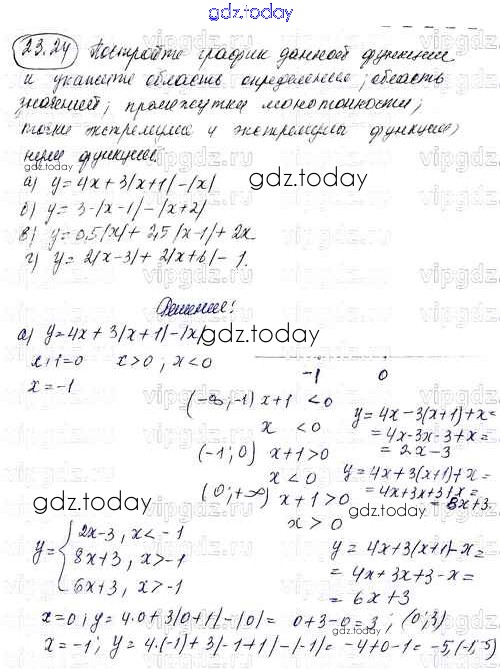 gdz.today
23.24 Постройте график данной функции
и укажите область определения; область
значений; промежутки монотонности;
точки экстремума и экстремумы функции;
нули функции.
а) y=4x+3|x+1|-|x|
gdz.today
б) y=3-|x-1|-|x+2|
в) y=0,5|x|+2,5|x-1|+2x
г) y=2|x-3|+2|x+6|-1.
Решение:
а) y=4x+3|x+1|-|x|
gdz.today
x+1=0 x>0; x<0
-1 0
x=-1
(-∞;-1) x+1<0
x<0
y=4x-3(x+1)+x=
=4x-3x-3+x=
=2x-3
(-1;0) x+1>0
x<0
y=4x+3(x+1)+x=
=4x+3x+3+x=
=8x+3
(0;+∞) x+1>0
x>0
gdz.today
gdz.today
y=4x+3(x+1)-x=
=4x+3x+3-x=
=6x+3
y={2x-3, x<-1
8x+3, x>-1
6x+3, x>-1
x=0; y=4·0+3|0+1|-|0|=0+3-0=3; (0;3)
x=-1; y=4·(-1)+3|-1+1|-|-1|=-4+0-1=-5; (-1;-5)
gdz.today